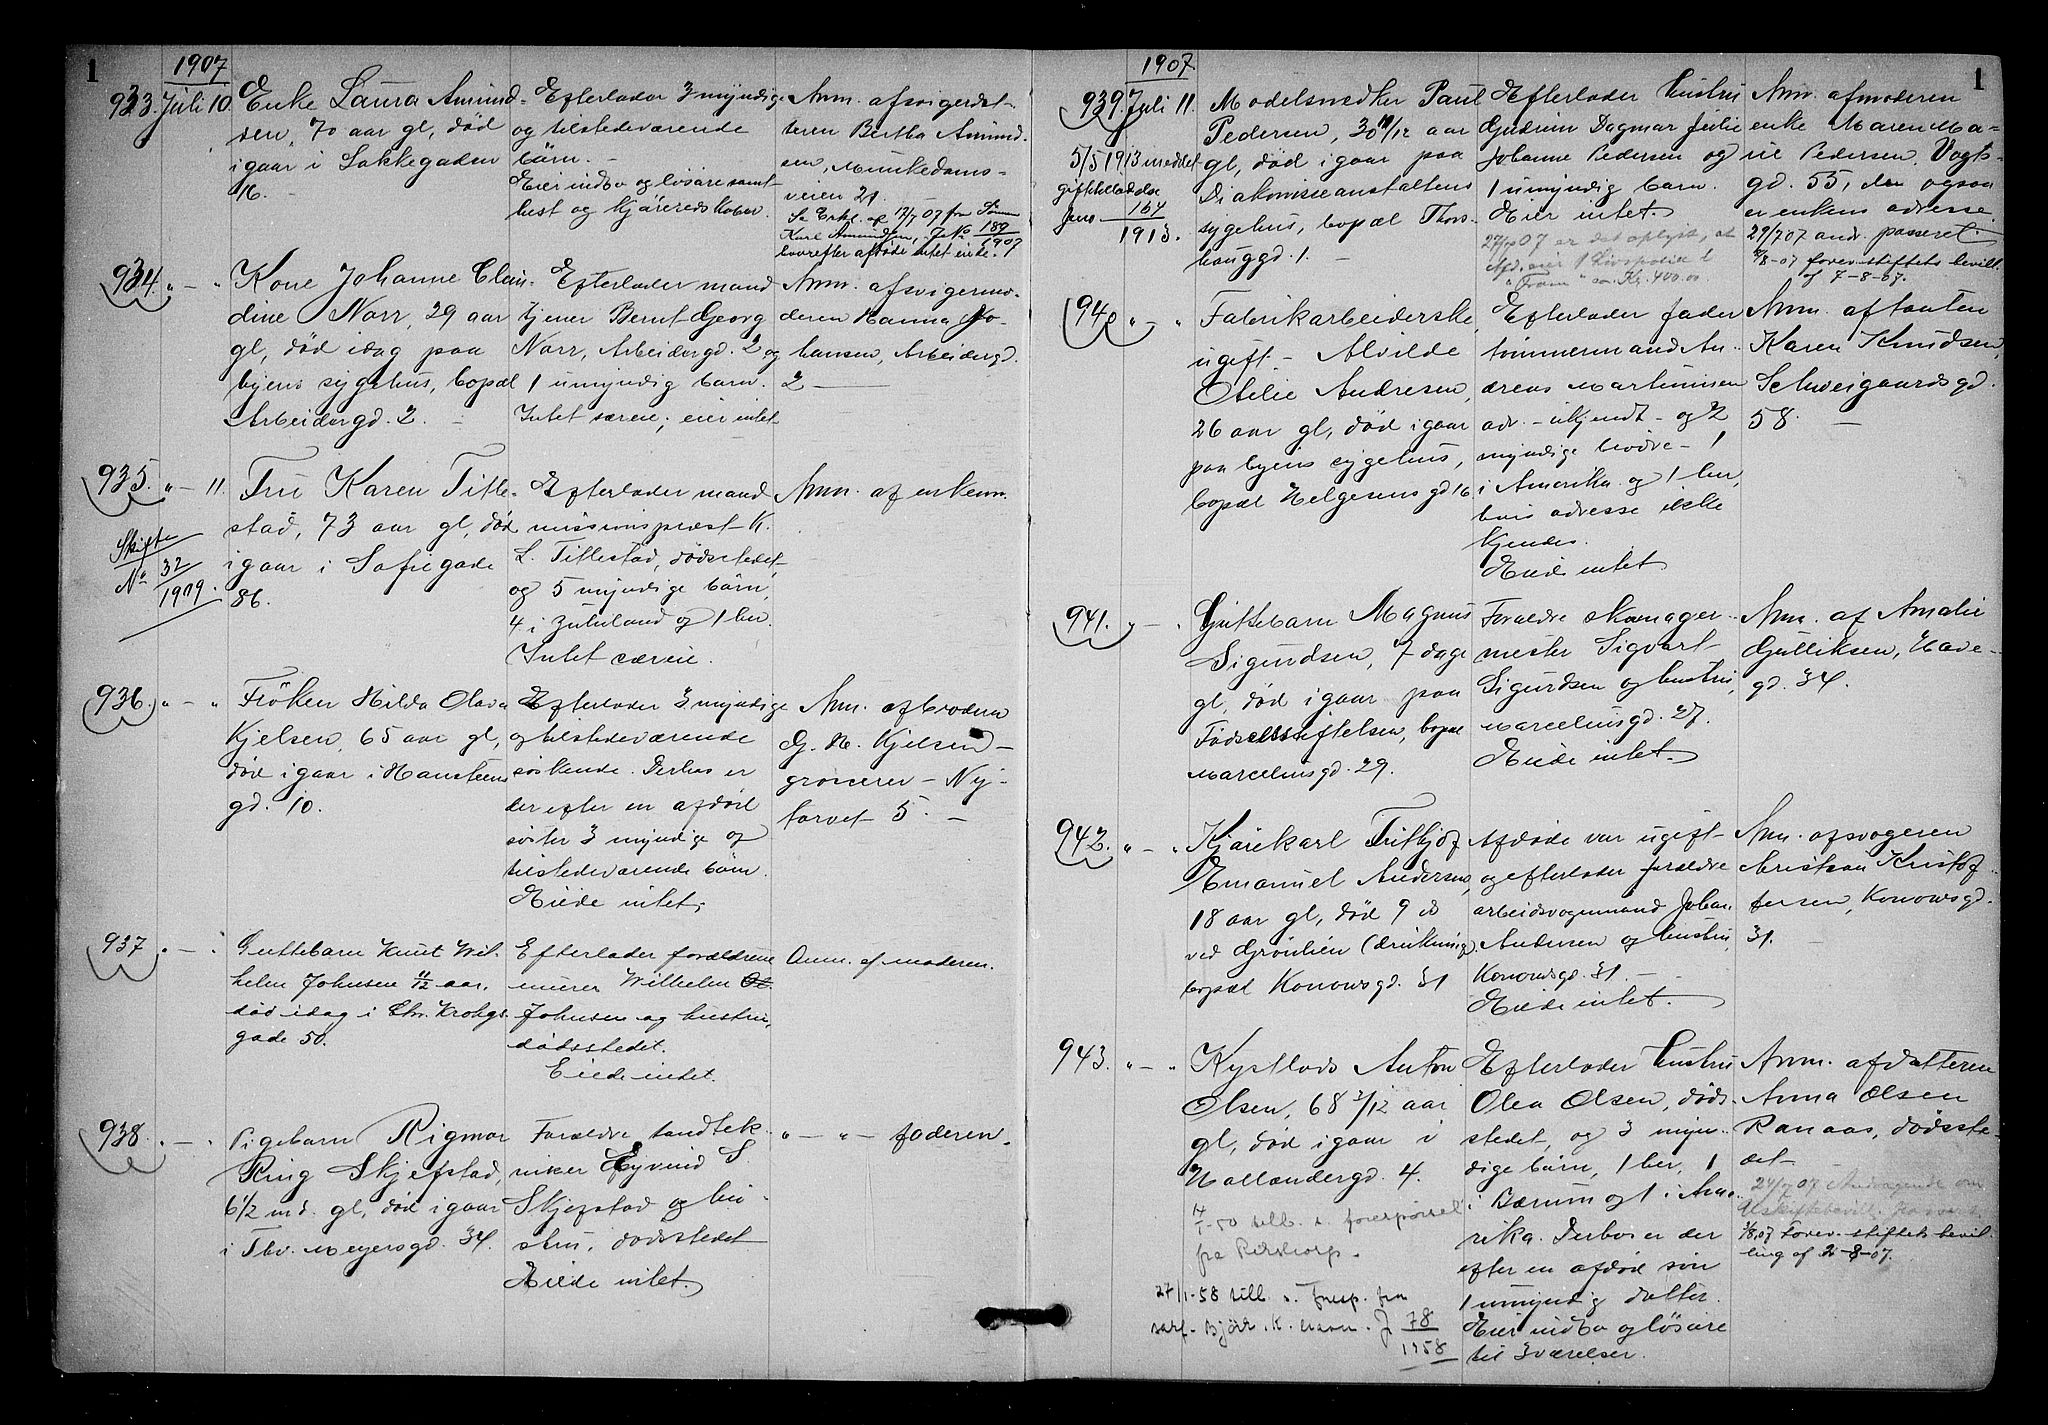 1
1907
933. Juli 10. Enke Laura Amund-
sen, 70 aar gl, död
igaar i Lakkegaden
16.
Efterlader 3 myndige
og tilstedeværende
börn. –
Eier indbo og lösöre samt
hest og kjöreredskaber.
Anm. af svigerdat-
teren Bertha Amund-
sen, Munkedams-
veien 21.
Se Erkl. af 12/7 07 fra Sönnen
Karl Amundsen, J. No 189/1907
hvorefter afdöde intet eiede.
934. " – " Kone Johanne Clau-
dine Norr, 29 aar
gl, död idag paa
byens sygehus, bopæl
Arbeidergd. 2. –
Efterlader mand
tjener Bernt Georg
Norr, Arbeidergd. 2 og
1 umyndig barn.
Intet særeie; eier intet
Anm. af svigermo-
deren Hanna Jo-
hansen, Arbeidergd.
2 —
935. " – 11. Fru Karen Title-
stad, 73 aar gl, död
igaar i Sofiegade
86.
Skifte
No 32/1909.
Efterlader mand
missionsprest K.
L. Titlestad, dödsstedet
og 5 myndige börn,
4 i Zululand og 1 her.
Intet særeie.
Anm. af enkem.
936. " – " Fröken Hilda Olava
Kjelsen, 65 aar gl,
död igaar i Hansteens
gd. 10.
Efterlader 3 myndige
og tilstedeværende
söskende. Derhos er
der efter en afdöd
söster 3 myndige og
tilstedeværende börn.
Eiede intet.
Anm. af broderen
G. H. Kjelsen –
grosserer – Ny-
torvet 5. –
937 " – " Guttebarn Knut Wil-
helm Johnsen 11/12 aar.
död idag i Chr. Krohgs
gade 50.
Efterlader forældrene
murer Wilhelm
Johnsen og hustru,
dödsstedet.
Eiede intet.
Anm. af moderen.
938. " – " Pigebarn Rigmor
Ring Skjefstad,
6 1/2 md. gl, död igaar
i Thv. Meyersgd. 34.
Forældre tandtek-
niker Eyvind S.
Skjefstad og hu-
stru, dödsstedet
Eiede intet.
" – " – faderen.
1
1907
939. Juli 11. Modelsnedker Paul
Pedersen, 30 10/12 aar
gl, död igaar paa
Diakonisseanstaltens
sygehus, bopæl Thors-
hauggd. 1. –
5/5 1913 meddelt
giftetilladelse
Jour. 164
1913.
Efterlader hustru
Gudrun Dagmar Julie
Johanne Pedersen og
1 umyndig barn.
Eier intet.
27/7 07 er det oplyst, at
Afd. eier 1 Livspolice i
"Fram" ca. Kr. 400.00
Anm. af moderen
enke Maren Ma-
rie Pedersen, Vogts-
gd. 55, der ogsaa
er enkens adresse.
29/7 07 andr. passeret.
/8-07 forev. stiftets bevill.
af 7-8-07.
940 " – " Fabrikarbeiderske,
ugift – Alvilde
Otelie Andresen,
26 aar gl, död igaar
paa byens sygehus,
bopæl Helgesens gd 16
Efterlader fader
tömmermand An-
dreas Martinusen
adr. – ukjendt – og 2
myndige brödre – 1
i Amerika og 1 her,
hvis adresse ikke
kjendes.
Eiede intet
Anm. af tanten
Karen Knudsen,
Schweigaardsgd.
58. –
941. " – " Guttebarn Magnus
Sigurdsen, 7 dage
gl, död igaar paa
Födselsstiftelsen, bopæl
Marcelinsgd. 29.
Forældre skomager-
mester Sigvart
Sigurdsen og hustru,
Marcelinsgd. 27.
Eiede intet.
Anm. af Amalie
Gulliksen, Have-
gd. 34.
942. " – " Kjörekarl Fritjof
Emanuel Andersen,
18 aar gl, död 9 ds
ved Grönlien (drukning)
bopæl Konowsgd. 31
Afdöde var ugift
og efterlader forældre
arbeidsvognmand Johan
Andersen og hustru,
Konowsgd. 31. –
Eiede intet.
Anm. af svogeren
Kristian Kristof-
fersen, Konowsgd.
31. –
943. " – " Kystlods Anton
Olsen, 68 2/12 aar
gl, död igaar i
Hollændergd. 4.
-50 till. s. forespörsel
fra
27/1-58 till. s. foresp. fra
J 78
1958
Efterlader hustru
Olea Olsen, döds-
stedet, og 3 myn-
dige börn, 1 her, 1
i Bærum og 1 i Ame-
rika. Derhos er der
efter en afdöd sön
1 umyndig datter.
Eier indbo og lösöre
til 3 værelser.
Anm. af datteren
Anna Olsen
Ranaas, dödsste-
det
24/7 07 Andragende om
Uskiftebevill.
3/8.07 Forev. stiftets bevil-
ling af 2-8-07.